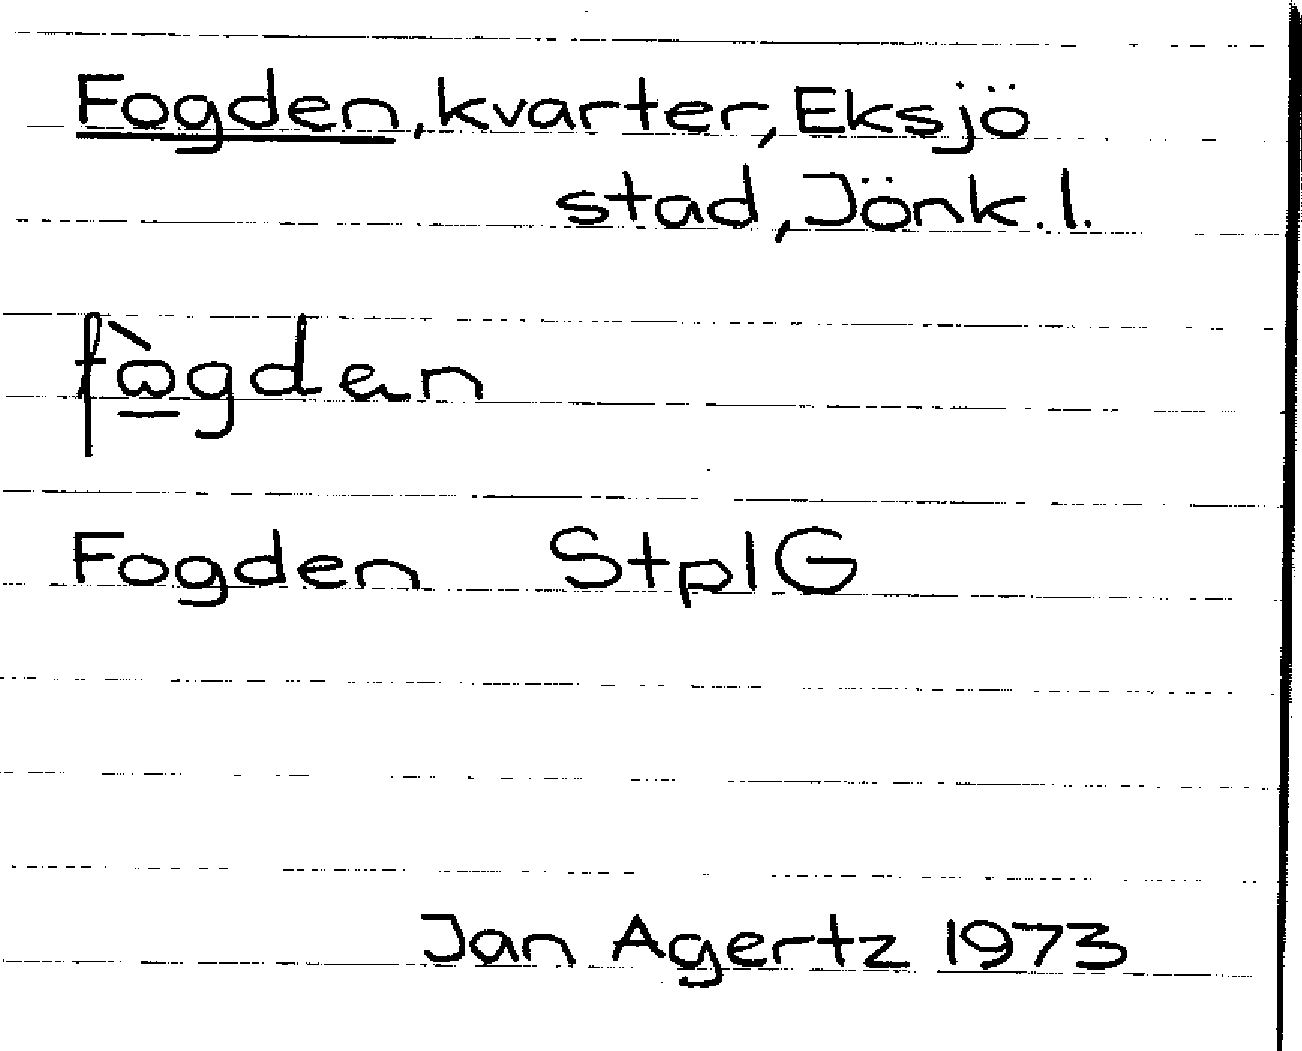 Fogden, kvarter, Eksjö
stad, Jönk. l.
fὼ̲gdən
Fogden StplG
Jan Agertz 1973